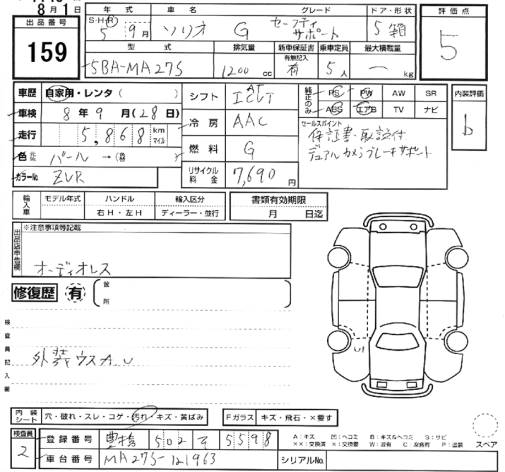 8月1日
出品番号 159
年式 車名 グレード ドア・形状
S・H・R 5年9月 ソリオ G セーフティサポート 5箱
型式 排気量 新車保証書 乗車定員 最大積載量
有無記入
5BA-MA27S 1200cc 有 5人 ― kg
評価点 5
内装評価 b
車歴 自家用・レンタ( )
車検 8年9月(28日)
走行 5,868 km マイル
色 元色 パール→(替
カラーNo. ZVR
シフト IAT
冷房 AAC
燃料 G
リサイクル料金 7,690円
純正のみ PS PW AW SR
ABS エアB TV ナビ
セールスポイント
保証書・取説付
デュアルカメラブレーキサポート
輸入車 モデル年式 ハンドル 輸入区分
右H・左H ディーラー・並行
書類有効期限
月 日迄
出品店申告欄 ※注意事項等記載
オーディオレス
修復歴 有 箇所
検査員記入欄
外装ウスキズ
U
内装シート 穴・破れ・スレ・コゲ・汚れ・キズ・黄ばみ
Fガラス キズ・飛石・×要す
検査員 2
登録番号 豊橋 502 5598
車台番号 MA27S-121963
シリアルNo.
A:キズ U:凹ヘコミ B:キズ&ヘコミ S:サビ
××:交換済 ×:交換要 W:波有 C:腐食有 P:塗装
スペア